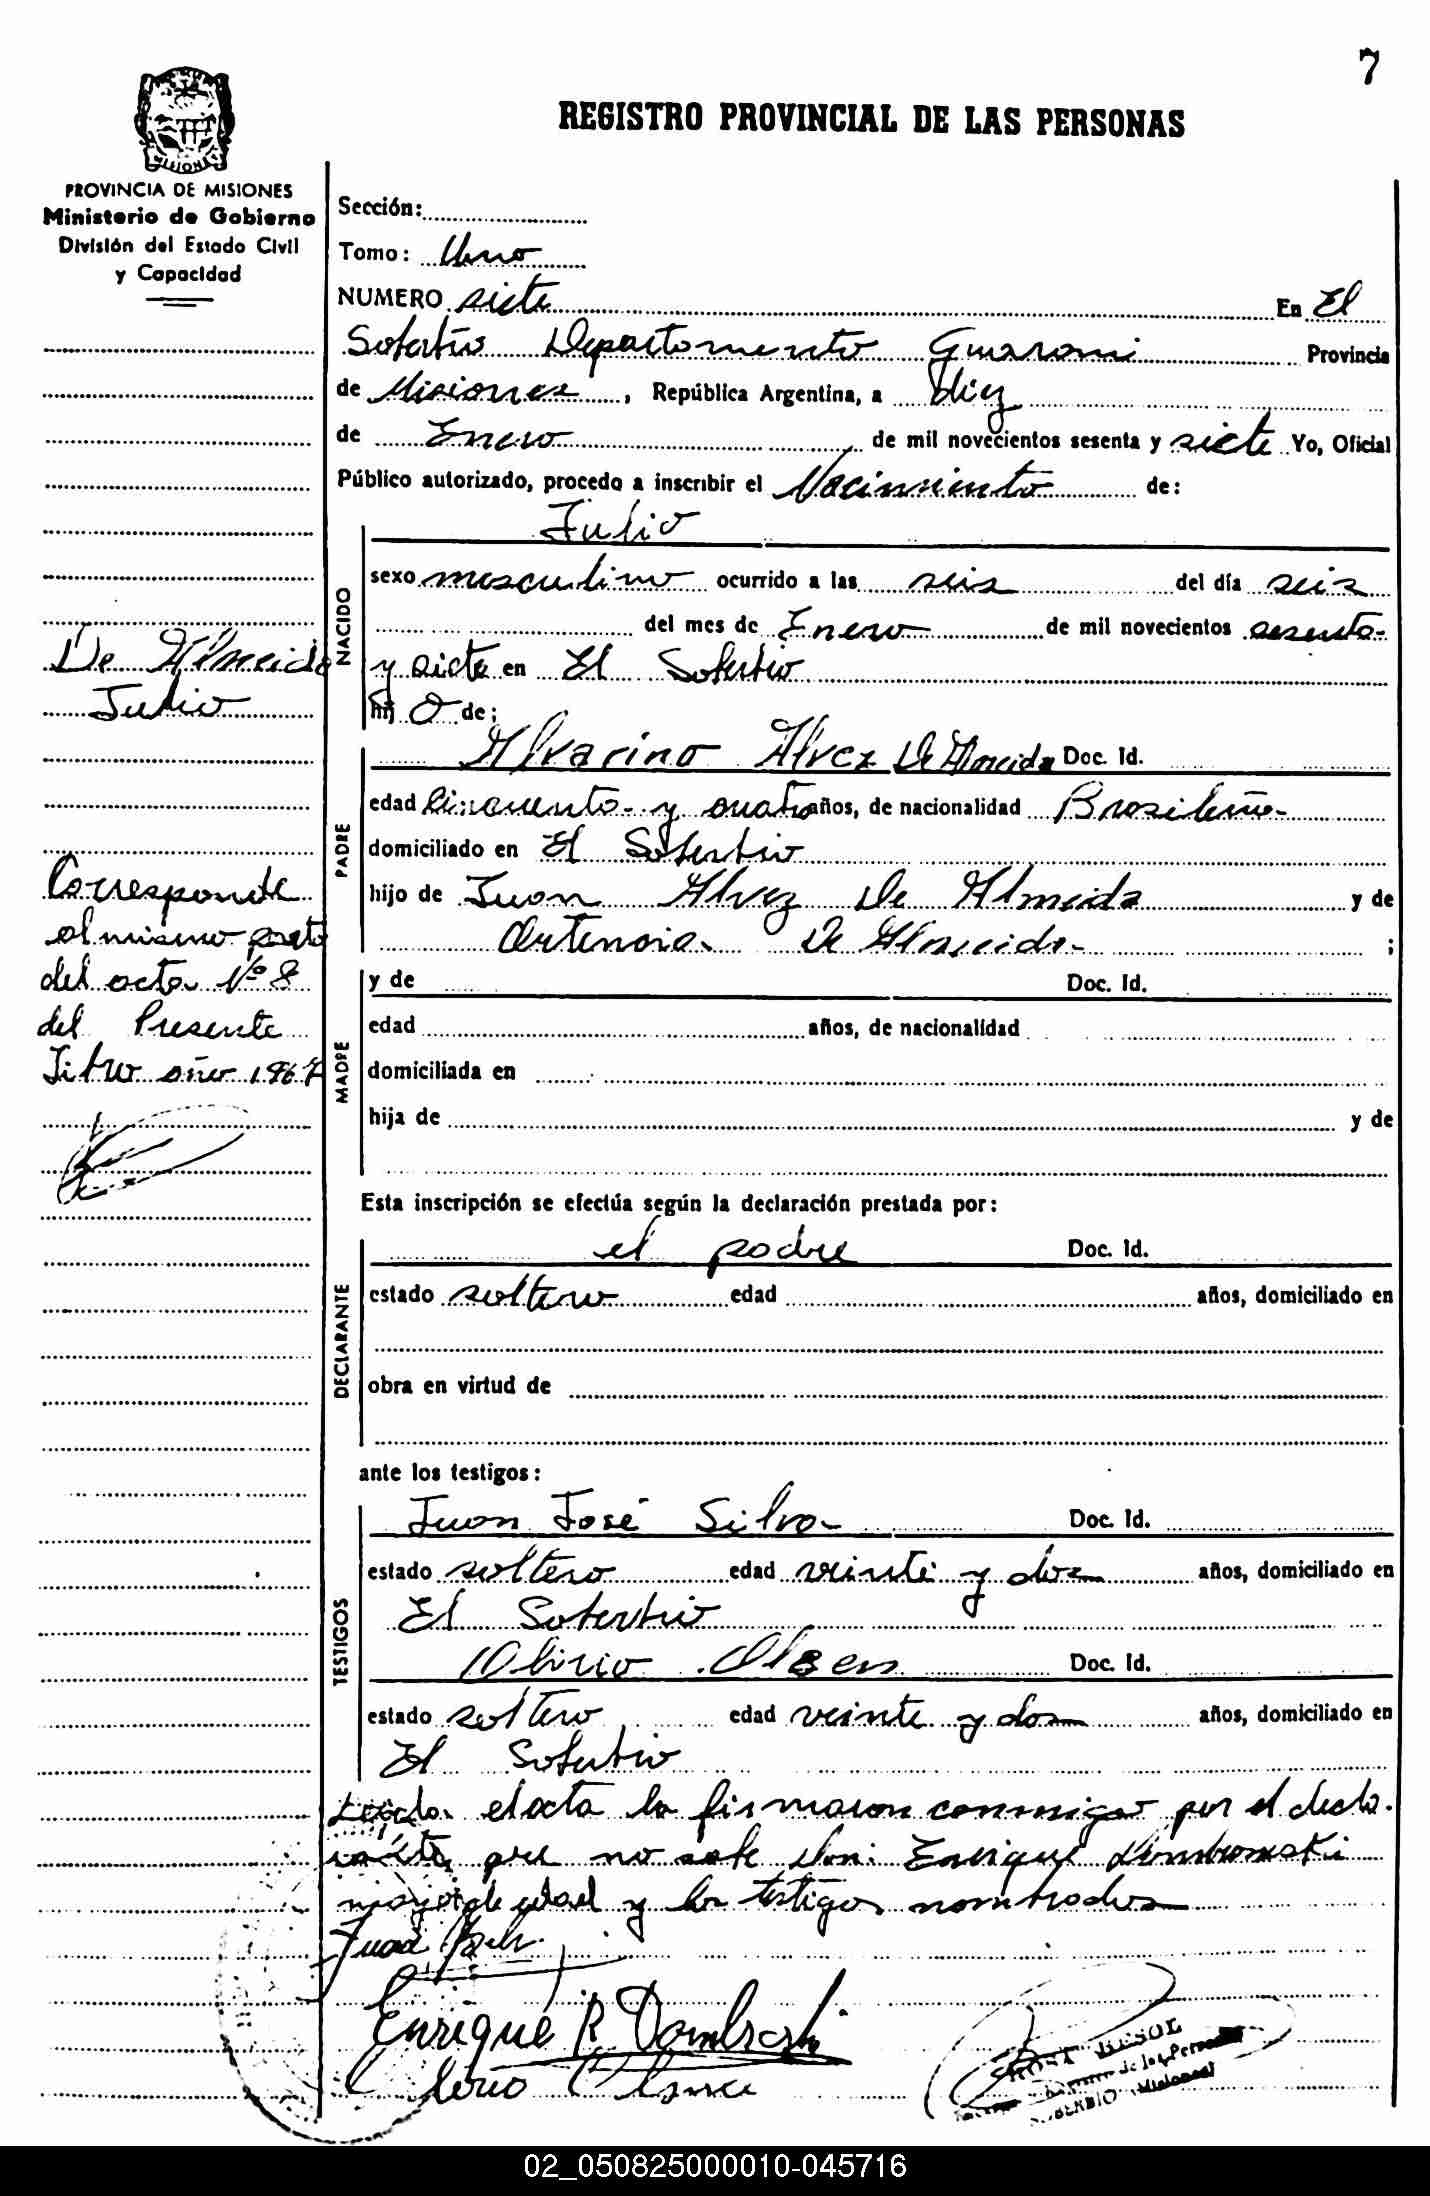 7
REGISTRO PROVINCIAL DE LAS PERSONAS
MISIONES
PROVINCIA DE MISIONES
Ministerio de Gobierno
División del Estado Civil
y Capacidad
De Almeida
Julio
Corresponde
al mismo parto
del acta Nº 8
del Presente
Libro año 1967
Sección:
Tomo: Uno
NUMERO siete En El
Soberbio Departamento Guarani Provincia
de Misiones, República Argentina, a diez
de Enero de mil novecientos sesenta y siete Yo, Oficial
Público autorizado, procedo a inscribir el Nacimiento de:
NACIDO
Julio
sexo masculino ocurrido a las seis del día seis
del mes de Enero de mil novecientos sesenta
y siete en El Soberbio
hij o de:
PADRE
Alvarino Alvez De Almeida Doc. Id.
edad Cincuenta y cuatro años, de nacionalidad Brasileña
domiciliado en El Soberbio
hijo de Juan Alvez De Almeida y de
Ortencia De Almeida ;
MADRE
y de Doc. Id.
edad años, de nacionalidad
domiciliada en
hija de y de
Esta inscripción se efectúa según la declaración prestada por:
DECLARANTE
el padre Doc. Id.
estado soltero edad años, domiciliado en
obra en virtud de
ante los testigos:
TESTIGOS
Juan José Silva Doc. Id.
estado soltero edad veinte y dos años, domiciliado en
El Soberbio
Olirio Olsen Doc. Id.
estado soltero edad veinte y dos años, domiciliado en
El Soberbio
Leida el acta la firmaron conmigo por el decla
rante que no sabe don: Enrique Dombrowski
mayor de edad y los testigos nombrados
Juan
Enrique R. Dombroski
02_050825000010-045716